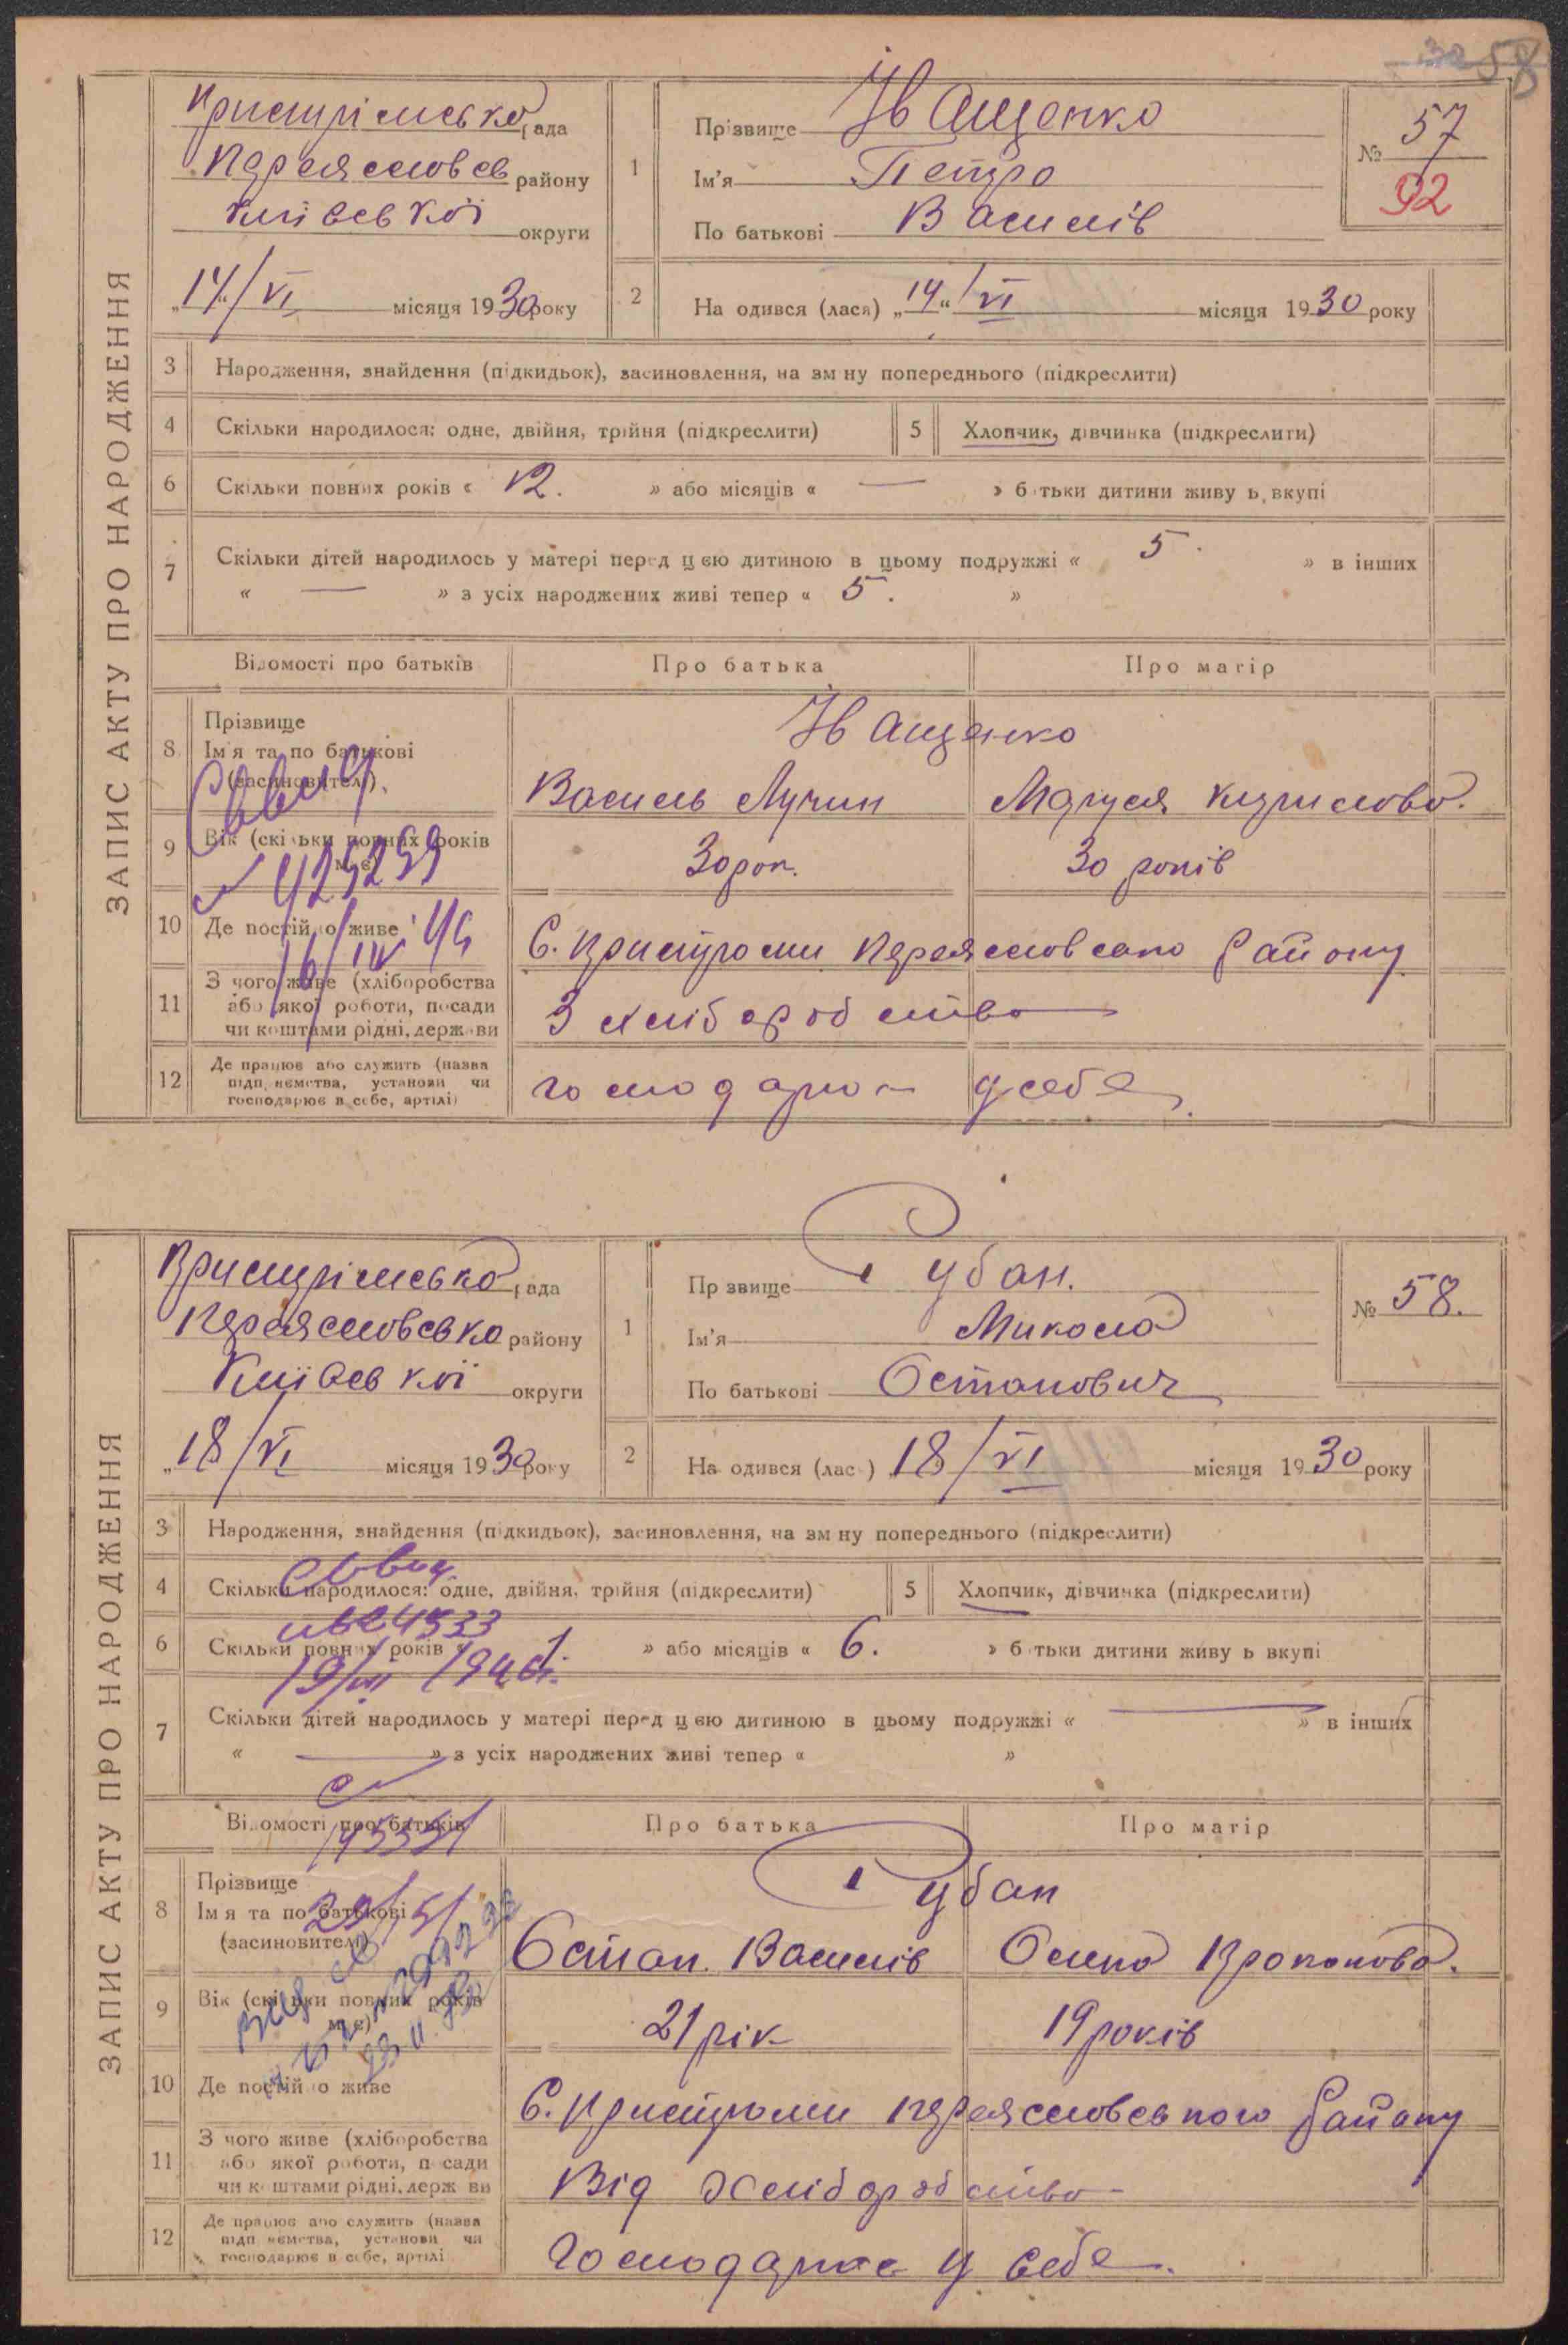 58
ЗАПИС АКТУ ПРО НАРОДЖЕННЯ
Пристрімсько рада
Переяславсь району
Київської округи
„14“/VI місяця 1930 року
1 Прізвище Іващенко
Ім'я Петро
По батькові Василів
№ 57
92
2 На одився (лася) „14“/VI місяця 1930 року
3 Народження, знайдення (підкидьок), засиновлення, на зм ну попереднього (підкреслити)
4 Скільки народилося: одне, двійня, трійня (підкреслити) 5 Хлопчик, дівчинка (підкреслити)
6 Скільки повних років « 12. » або місяців « — » б тьки дитини живу ь вкупі
7 Скільки дітей народилось у матері перед цією дитиною в цьому подружжі « 5. » в інших
« — » з усіх народжених живі тепер « 5. »
Відомості про батьків Про батька Про матір
8 Прізвище Іващенко
Ім'я та по батькові
(засиновител) Василь Лучин Маруся Кирилова.
9 Вік (скільки повних років має) 30 рок. 30 років
10 Де постійно живе С. Пристроми Переяславсако Району
11 З чого живе (хліборобства
або якої роботи, посади
чи коштами рідні, держави З хліборобства
12 Де працює або служить (назва
підп ємства, установи чи
господарює в себе, артілі) господарює у себе
16/IV 44
ЗАПИС АКТУ ПРО НАРОДЖЕННЯ
Пристрімсько рада
Переяславсько району
Київської округи
„18/VI місяця 1930 року
1 Пр звище Рубан.
Ім'я Микола
По батькові Остапович
№ 58.
2 На одився (лас ) 18/VI місяця 1930 року
3 Народження, знайдення (підкидьок), засиновлення, на зм ну попереднього (підкреслити)
4 Скільки народилося: одне, двійня, трійня (підкреслити) 5 Хлопчик, дівчинка (підкреслити)
6 Скільки повних років « 1 » або місяців « 6. » б тьки дитини живу ь вкупі
7 Скільки дітей народилось у матері перед цією дитиною в цьому подружжі « — » в інших
« — » з усіх народжених живі тепер « »
Відомості про батьків Про батька Про матір
8 Прізвище Рубан
Ім'я та по батькові
(засиновител) Остап. Василів Олена Прокопова.
9 Вік (скільки повних років має) 21 рік 19 років
10 Де постійно живе С. Пристроми Переяславського Району
11 З чого живе (хліборобства
або якої роботи, посади
чи коштами рідні, держ ви Від Хліборобства
12 Де працює або служить (назва
підп ємства, установи чи
господарює в себе, артілі Господарює у себе.